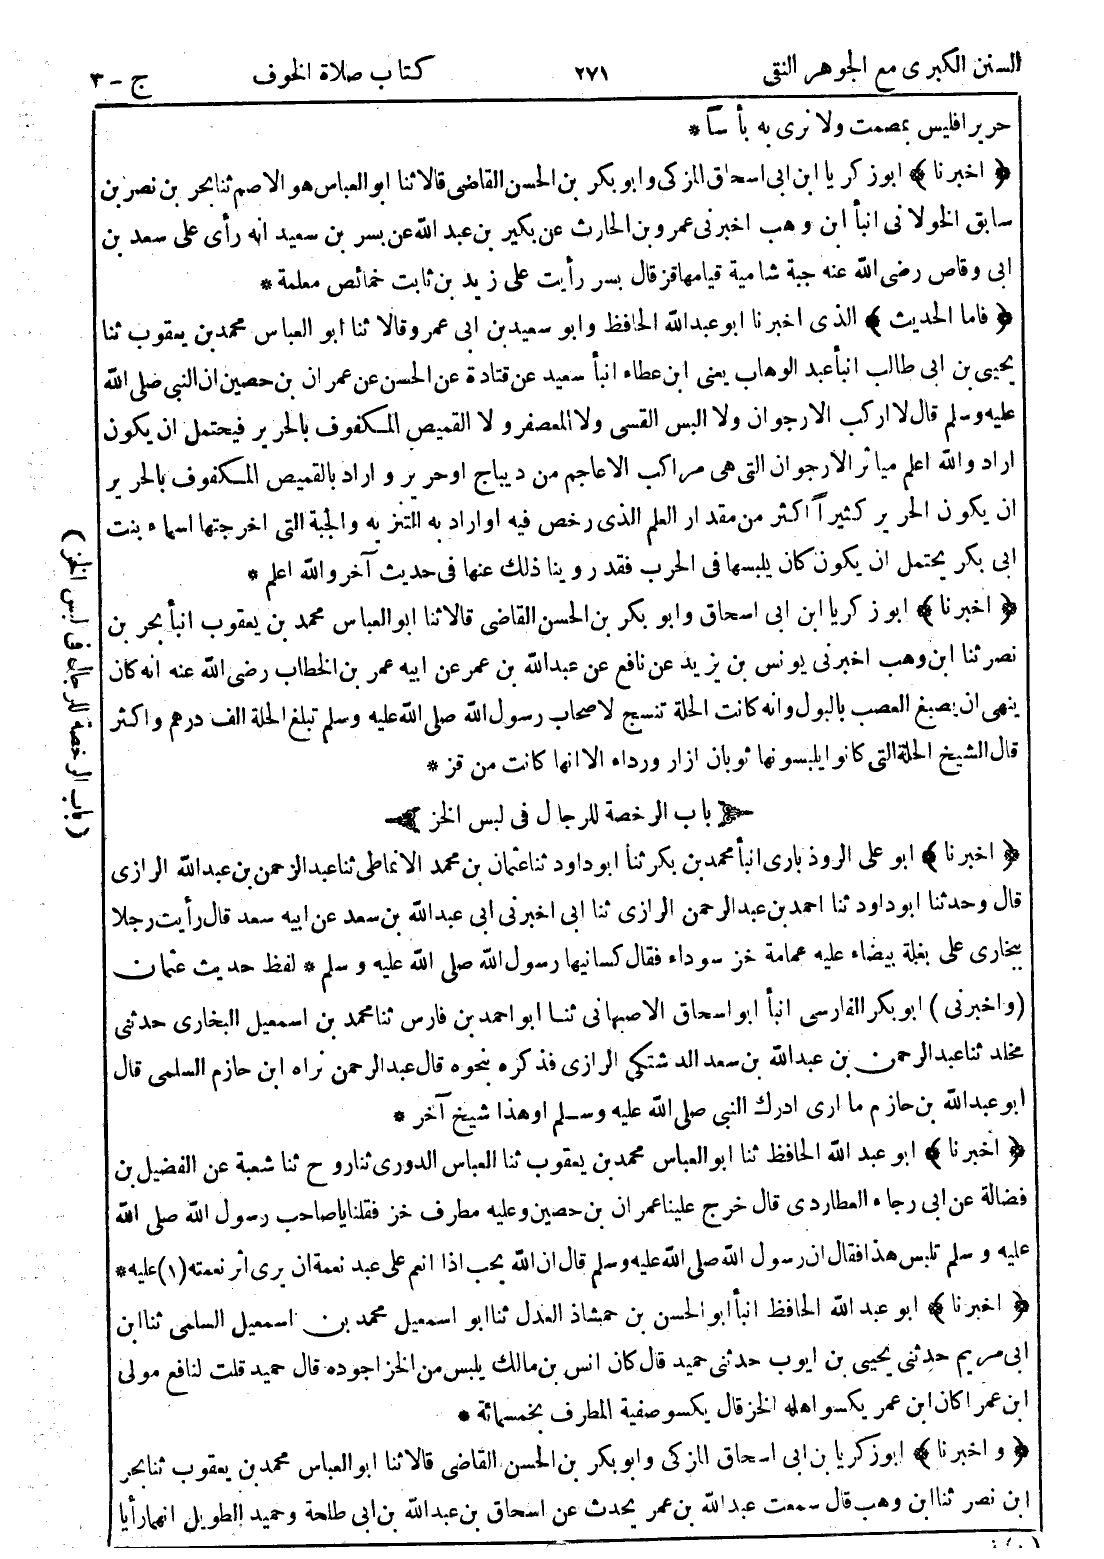 السنن الكبرى مع الجوهر النقى ٢٧١ كتاب صلاة الخوف ج - ٣
حرير افليس بمصمت ولا نرى به بأ سآ *
﴿ اخبرنا ﴾ ابوزكريا ابن ابى اسحاق المزكى وابوبكر بن الحسن القاضى قالا ثنا ابوالعباس هو الاصم ثنا بحر بن نصر بن
سابق الخولانى انبأ ابن وهب اخبرنى عمرو بن الحارث عن بكير بن عبد الله عن بسر بن سعيد انه رأى على سعد بن
ابى وقاص رضى الله عنه جبة شامية قيامها قز قال بسر رأيت على زيد بن ثابت خمائص معلمة *
﴿ فاما الحديث ﴾ الذى اخبرنا ابوعبدالله الحافظ وابو سعيد بن ابى عمرو قالا ثنا ابو العباس محمد بن يعقوب ثنا
يحيى بن ابى طالب انبأ عبد الوهاب يعنى ابن عطاء انبأ سعيد عن قتادة عن الحسن عن عمران بن حصين ان النبى صلى الله
عليه وسلم قال لا اركب الارجوان ولا البس القسى ولا المعصفر ولا القميص المكفوف بالحرير فيحتمل ان يكون
اراد والله اعلم مياثر الارجوان التى هى مراكب الاعاجم من ديباج اوحرير و اراد بالقميص المكفوف بالحرير
ان يكون الحرير كثيراً اكثر من مقدار العلم الذى رخص فيه اواراد به التنزيه والجبة التى اخرجتها اسماء بنت
ابى بكر يحتمل ان يكون كان يلبسها فى الحرب فقد روينا ذلك عنها فى حديث آخر والله اعلم *
﴿ اخبرنا ﴾ ابوزكريا ابن ابى اسحاق وابو بكر بن الحسن القاضى قالا ثنا ابوالعباس محمد بن يعقوب انبأ بحر بن
نصر ثنا ابن وهب اخبرنى يونس بن يزيد عن نافع عن عبدالله بن عمر عن ابيه عمر بن الخطاب رضى الله عنه انه كان
ينهى ان يصبغ العصب بالبول وانه كانت الحلة تنسج لاصحاب رسول الله صلى الله عليه وسلم تبلغ الحلة الف درهم واكثر
قال الشيخ الحلة التى كانوا يلبسونها ثوبان ازار ورداء الا انها كانت من قز *
باب الرخصة للرجال فى لبس الخز
﴿ اخبرنا ﴾ ابو على الروذبارى انبأ محمد بن بكر ثنا ابوداود ثنا عثمان بن محمد الانماطى ثنا عبدالرحمن بن عبدالله الرازى
قال وحدثنا ابوداود ثنا احمد بن عبدالرحمن الرازى ثنا ابى اخبرنى ابى عبدالله بن سعد عن ابيه سعد قال رأيت رجلا
ببخارى على بغلة بيضاء عليه عمامة خز سوداء فقال كسانيها رسول الله صلى الله عليه وسلم * لفظ حديث عثمان
(واخبرنى ) ابوبكر الفارسى انبأ ابواسحاق الاصبهانى ثنا ابواحمد بن فارس ثنا محمد بن اسمعيل البخارى حدثنى
مخلد ثنا عبدالرحمن بن عبدالله بن سعد الدشتكى الرازى فذكره بنحوه قال عبدالرحمن نراه ابن حازم السلمى قال
ابوعبدالله بن حازم ما ارى ادرك النبى صلى الله عليه وسلم اوهذا شيخ آخر *
﴿ اخبرنا ﴾ ابو عبد الله الحافظ ثنا ابوالعباس محمد بن يعقوب ثنا العباس الدورى ثنا روح ثنا شعبة عن الفضيل بن
فضالة عن ابى رجاء العطاردى قال خرج علينا عمران بن حصين وعليه مطرف خز فقلنا ياصاحب رسول الله صلى الله
عليه وسلم تلبس هذا فقال ان رسول الله صلى الله عليه وسلم قال ان الله يحب اذا انعم على عبد نعمة ان يرى اثر نعمته (١) عليه *
﴿ اخبرنا ﴾ ابو عبد الله الحافظ انبأ ابو الحسن بن حمشاذ العدل ثنا ابو اسمعيل محمد بن اسمعيل السلمى ثنا ابن
ابى مريم حدثنى يحيى بن ايوب حدثنى حميد قال كان انس بن مالك يلبس من الخز اجوده قال حميد قلت لنافع مولى
ابن عمر اكان ابن عمر يكسو اهله الخز قال يكسو صفية المطرف بخمسمائة *
﴿ و اخبرنا ﴾ ابوزكريا بن ابى اسحاق المزكى وابوبكر بن الحسن القاضى قالا ثنا ابوالعباس محمد بن يعقوب ثنا بحر
ابن نصر ثنا ابن وهب قال سمعت عبدالله بن عمر يحدث عن اسحاق بن عبدالله بن ابى طلحة وحميد الطويل انهما رأيا
(باب الرخصة للرجال فى لبس الخز)